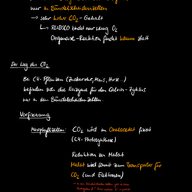 nur in Bündelscheidenzellen
→ sehr hoher CO₂-Gehalt
→ RUBISCO bindet nur wenig O₂
Oxygenase-Reaktion findet kaum statt
Der Weg des CO₂
Bei C4-Pflanzen (Zuckerrohr, Mais, Hirse..)
befinden sich die Enzyme für den Calvin-Zyklus
nur in den Bündelscheidenzellen.
Vorfixierung
Mesophyllzellen: CO₂ wird zu Oxalacetat fixiert
(C4-Photosynthese)
Reduktion zu Malat
Malat wird damit zum Transporter für
CO₂ (und Elektronen)